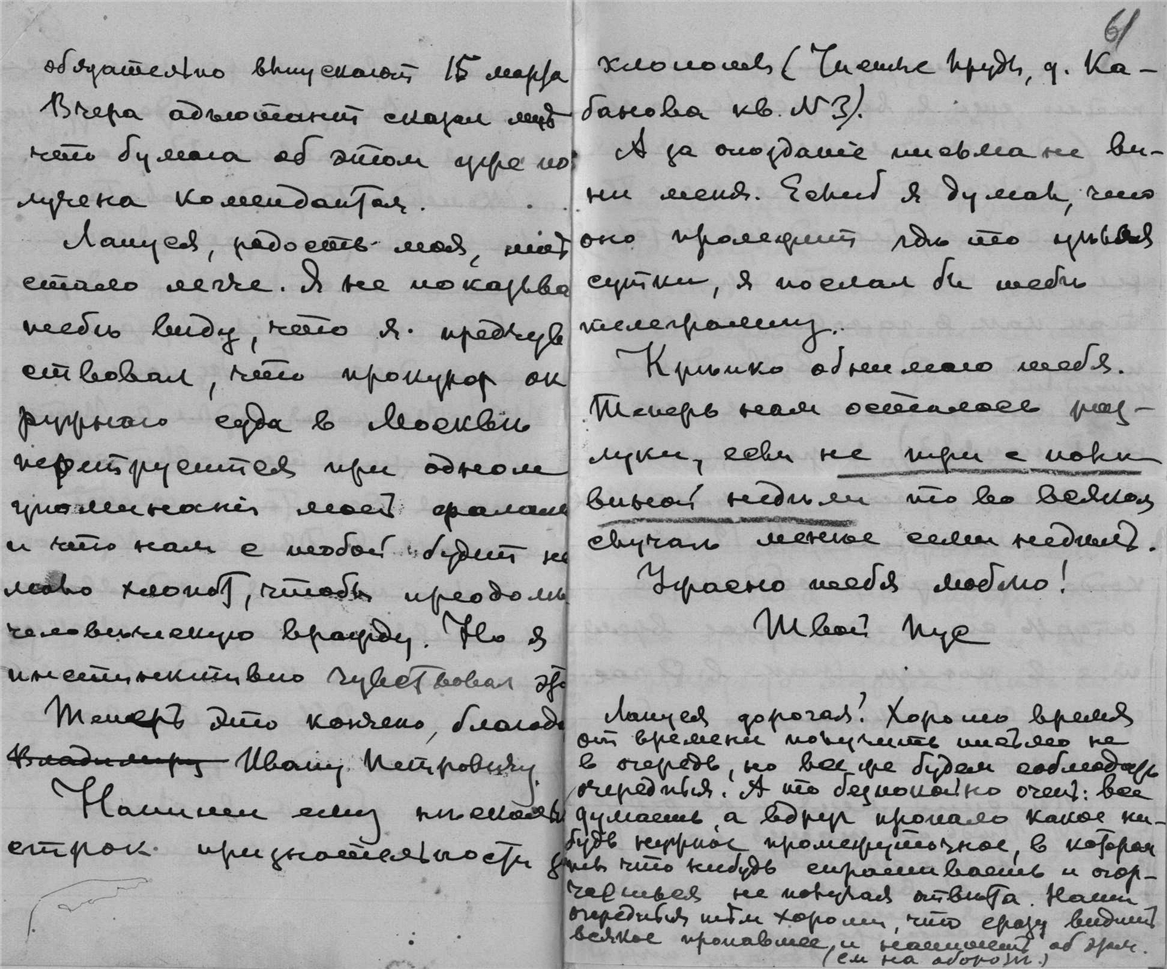 обязательно выпускают 15 марта
Вчера адъютант сказал мнѣ
что бумага об этом уже по
лучена комендантом.
Лапуся, радость моя, мнѣ
стало легче. Я не показыва
тебѣ виду, что я предчув
ствовал, что прокурор ок
ружного суда в Москвѣ
при одном
упоминаніи моей фамил
и что нам с тобой будет не
мало хлопот, чтобы преодолѣ
человѣческую вражду. Но я
инстинктивно чувствовал это
Теперь это кончено, благода
Владимиру Ивану Петровичу.
Напиши ему нѣсколь
строк признательности за
61
хлопоты (Чистые пруды, д. Ка-
банова кв. N 3).
А за опозданіе письма не ви-
ни меня. Если б я думал, что
оно пролежит гдѣ то цѣлыя
сутки, я послал бы тебѣ
телеграмму.
Крѣпко обнимаю тебя.
Теперь нам осталось раз-
луки, если не три с поло
виной недѣли то во всяком
случаѣ менѣе семи недѣль.
Ужасно тебя люблю!
Твой Пус
Лапуся дорогая! Хорошо время
от времени получить письмо не
в очередь, но все же будем соблюдать
очередныя. А то безпокойно очень: все
думаешь, а вдруг пропало какое ни-
будь нужное промежуточное, в котором
ты что нибудь спрашиваешь и огор-
чаешься не получая отвѣта. Наши
очередныя тѣм хороши, что сразу видишь
всякое пропавшее, и напишешь об этом.
(см на оборотѣ.)